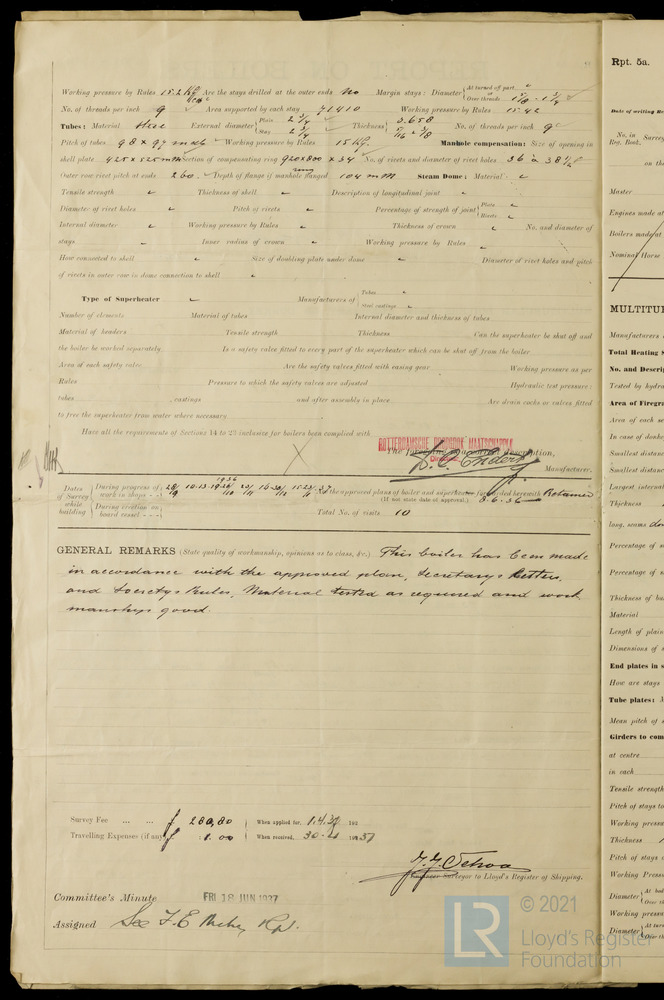 Working pressure by Rules 15.2 Kg Are the stays drilled at the outer ends No Margin stays: Diameter { At turned off part
Over threads 1 5/8 - 1 3/4
No. of threads per inch 9 Area supported by each stay 71410 Working pressure by Rules 15.42
Tubes: Material Steel External diameter { Plain 2 3/4 Stay 2 3/4 Thickness { 3.658 5/16 & 3/8 No. of threads per inch 9
Pitch of tubes 98 x 97 mm Working pressure by Rules 15 Kg. Manhole compensation: Size of opening in
shell plate 425 x 525 mm Section of compensating ring 920x800 x 34 No. of rivets and diameter of rivet holes 36 à 38 1/2
Outer row rivet pitch at ends 260. Depth of flange if manhole flanged 104 mm Steam Dome: Material
Tensile strength Thickness of shell Description of longitudinal joint
Diameter of rivet holes Pitch of rivets Percentage of strength of joint { Plate Rivets
Internal diameter Working pressure by Rules Thickness of crown No. and diameter of
stays Inner radius of crown Working pressure by Rules
How connected to shell Size of doubling plate under dome Diameter of rivet holes and pitch
of rivets in outer row in dome connection to shell
Type of Superheater Manufacturers of { Tubes Steel castings
Number of elements Material of tubes Internal diameter and thickness of tubes
Material of headers Tensile strength Thickness Can the superheater be shut off and
the boiler be worked separately Is a safety valve fitted to every part of the superheater which can be shut off from the boiler
Area of each safety valve Are the safety valves fitted with easing gear Working pressure as per
Rules Pressure to which the safety valves are adjusted Hydraulic test pressure:
tubes castings and after assembly in place Are drain cocks or valves fitted
to free the superheater from water where necessary
Have all the requirements of Sections 14 to 23 inclusive for boilers been complied with
ROTTERDAMSCHE DROOGDOK MAATSCHAPPIJ
The foregoing is a correct description,
Manufacturer.
Dates of Survey while building { During progress of work in shops - - During erection on board vessel - - -
1936
the approved plans of boiler and superheater forwarded herewith Retained
(If not state date of approval.) 8-6-36
Total No. of visits 10
GENERAL REMARKS (State quality of workmanship, opinions as to class, &c.) This boiler has been made
in accordance with the approved plan, Secretary's letters,
and Society's Rules, Material tested as required and work-
manship good.
Survey Fee ... ... f 280,80 When applied for, 1.4.37 192
Travelling Expenses (if any) f 1.00 When received, 30-4 1937
Engineer Surveyor to Lloyd's Register of Shipping.
Committee's Minute FRI 18 JUN 1937
Assigned See F.E. Mchy Rpt.
Rpt. 5a.
Date of writing Re
No. in Reg. Book. Survey
on the
Master
Engines made at
Boilers made at
Nominal Horse
MULTITU
Manufacturers
Total Heating S
No. and Descri
Tested by hydra
Area of Firegra
Area of each sa
In case of donke
Smallest distanc
Smallest distanc
Largest internal
Thickness
long. seams
Percentage of s
Percentage of s
Thickness of bu
Material
Length of plain
Dimensions of s
End plates in s
How are stays
Tube plates: M
Mean pitch of s
Girders to com
at centre
in each
Tensile strength
Pitch of stays to
Working pressu
Thickness
Pitch of stays
Working Press
Diameter
Working pressu
Diameter
LR
© 2021
Lloyd's Register
Foundation